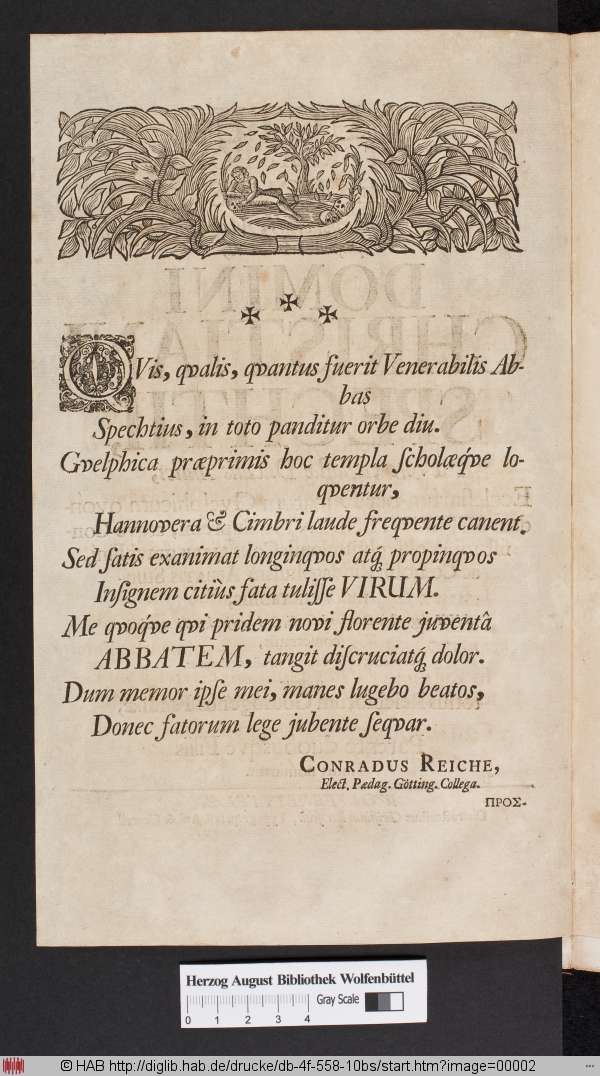 QVis, qvalis, qvantus fuerit Venerabilis Ab-
bas
Spechtius, in toto panditur orbe diu.
Gvelphica præprimis hoc templa ſcholæq́ve lo-
qventur,
Hannovera & Cimbri laude freqvente canent.
Sed ſatis exanimat longinqvos atq́ propinqvos
Inſignem citiùs fata tuliſſe VIRUM.
Me qvoq́ve qvi pridem novi florente juventâ
ABBATEM, tangit diſcruciatq́ dolor.
Dum memor ipſe mei, manes lugebo beatos,
Donec fatorum lege jubente ſeqvar.
CONRADUS REICHE,
Elect. Pædag. Götting. Collega.
ΠΡΟΣ-
Herzog August Bibliothek Wolfenbüttel
Gray Scale
0 1 2 3 4
© HAB http://diglib.hab.de/drucke/db-4f-558-10bs/start.htm?image=00002